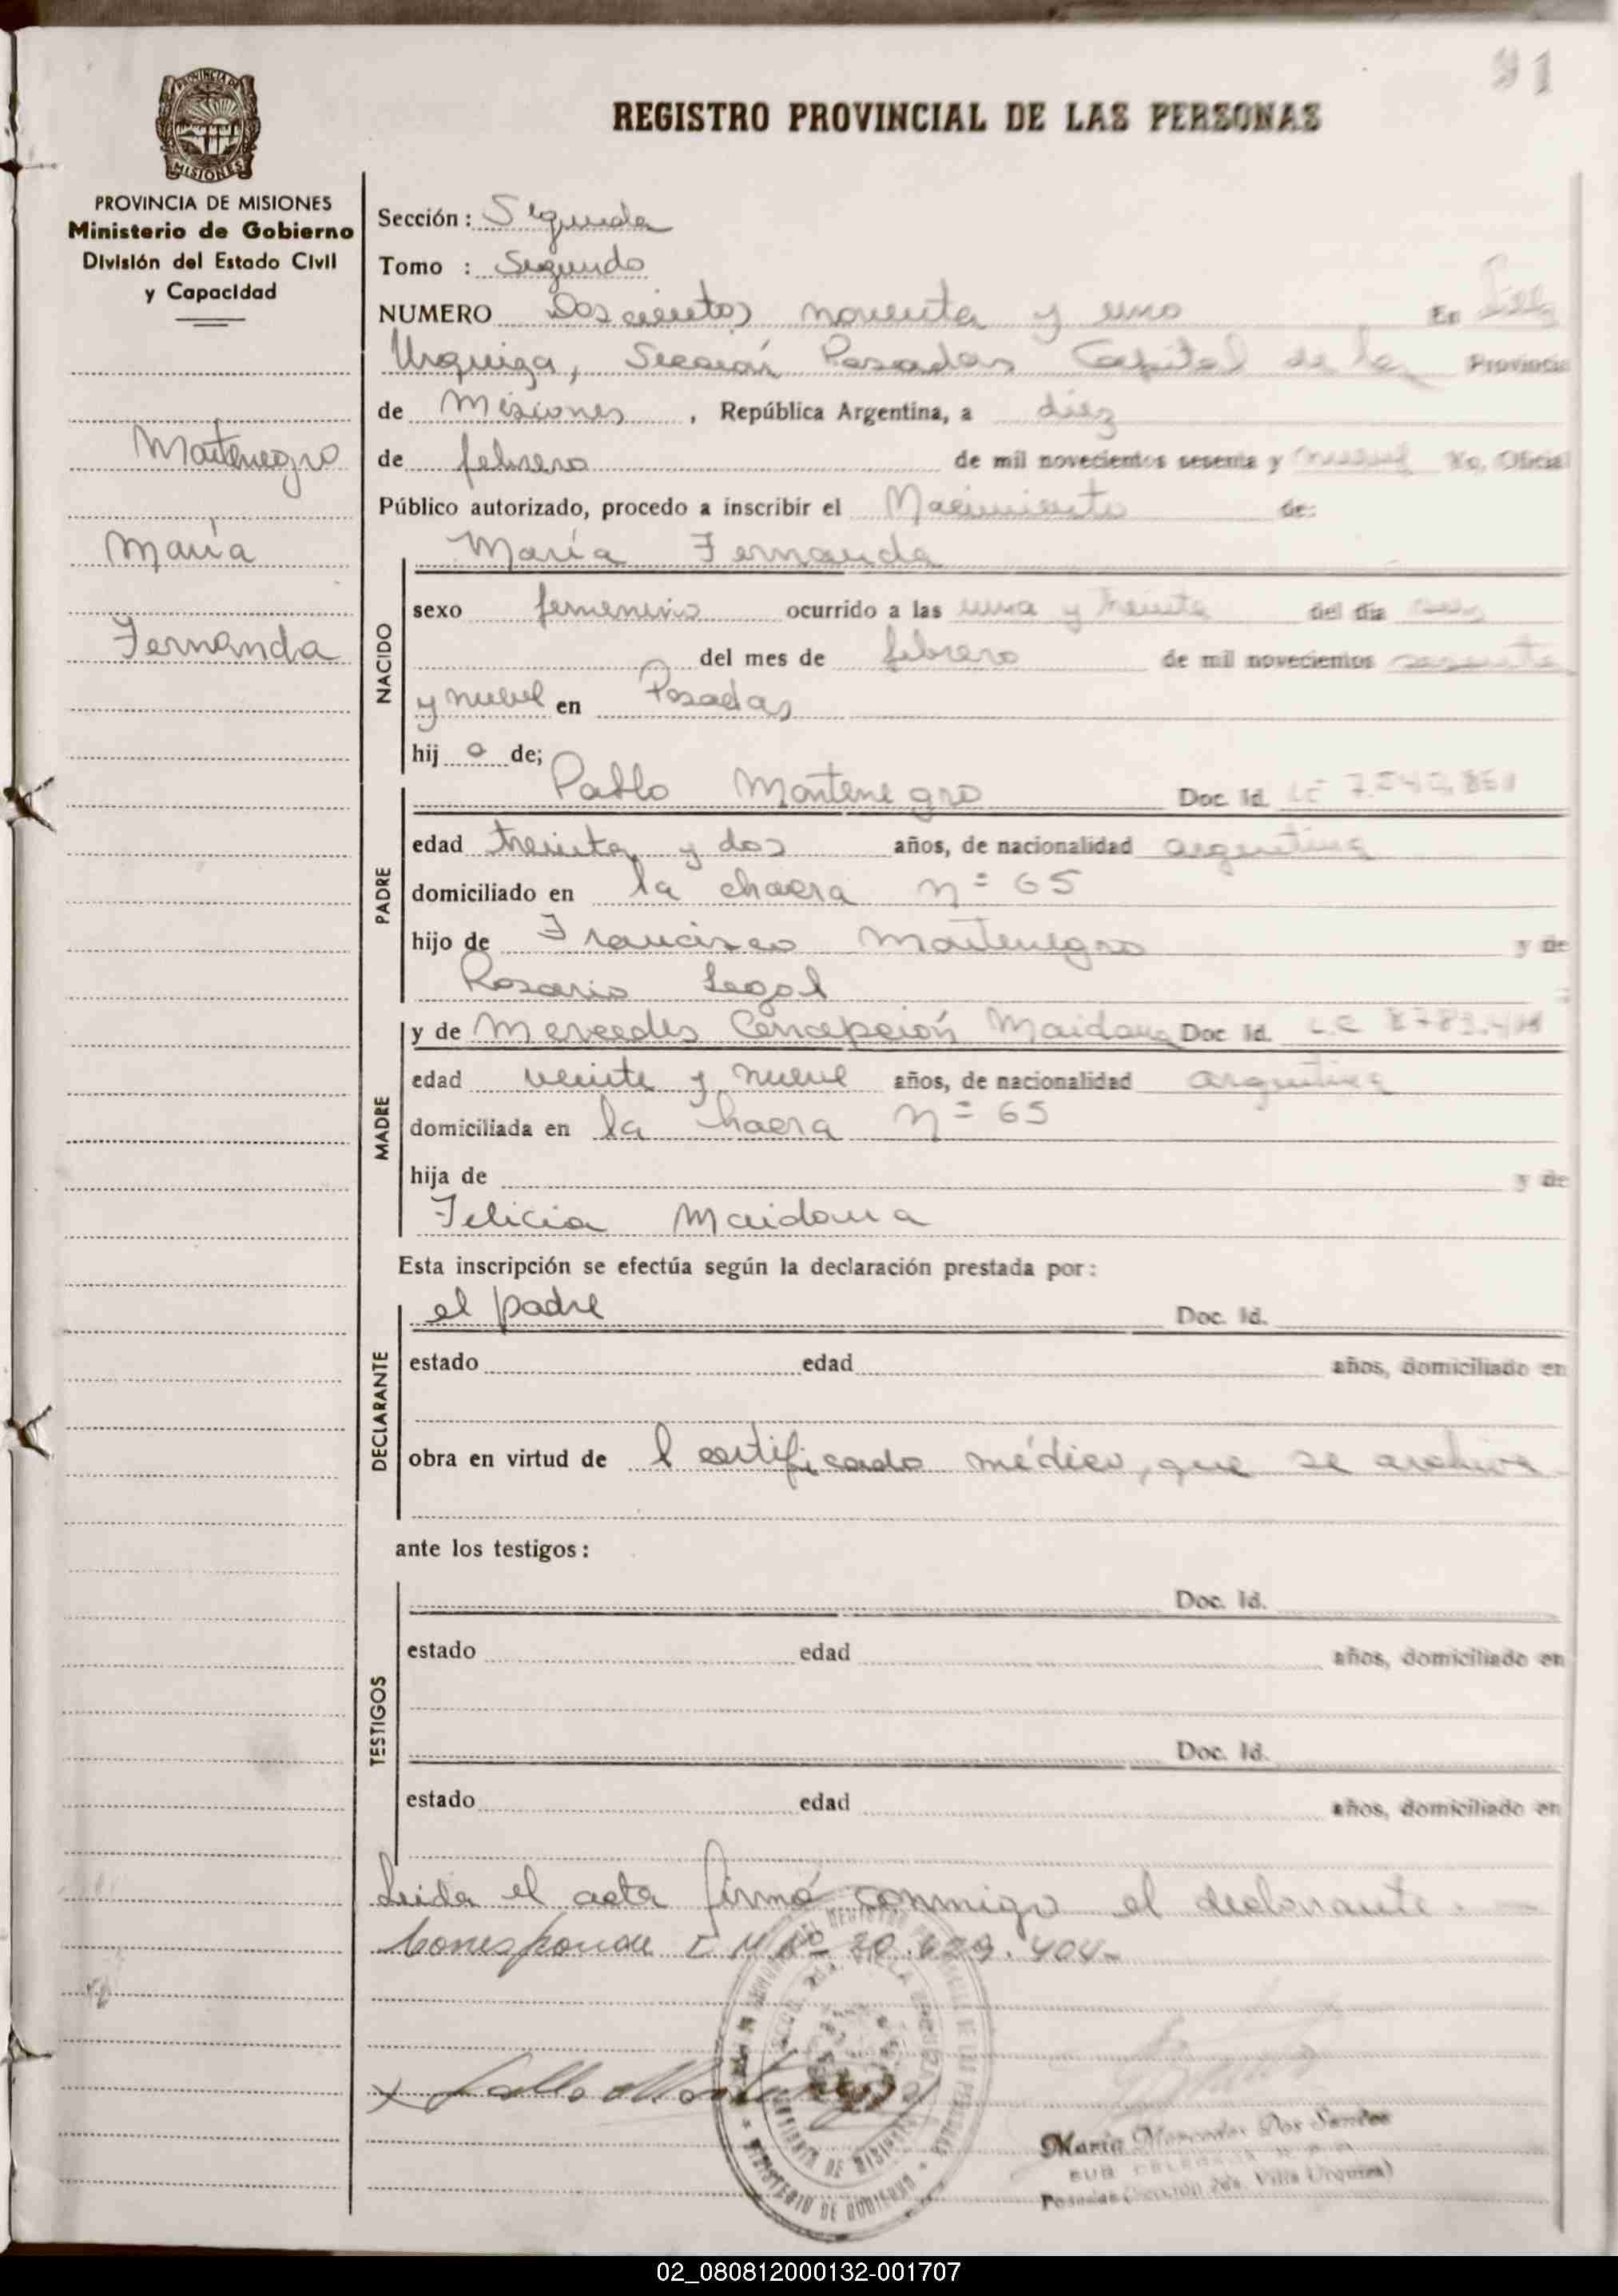 91
PROVINCIA DE MISIONES
REGISTRO PROVINCIAL DE LAS PERSONAS
PROVINCIA DE MISIONES
Ministerio de Gobierno
División del Estado Civil
y Capacidad
Montenegro
María
Fernanda
Sección: Segunda
Tomo : Segundo
NUMERO Doscientos noventa y uno En
Urquiza, Sección Posadas Capital de la Provincia
de Misiones, República Argentina, a diez
de febrero de mil novecientos sesenta y nueve Yo, Oficial
Público autorizado, procedo a inscribir el Nacimiento de:
María Fernanda
NACIDO
sexo femenino ocurrido a las una y treinta del día
del mes de febrero de mil novecientos sesenta
y nueve en Posadas
hij a de;
PADRE
Pablo Montenegro Doc. Id.
edad treinta y dos años, de nacionalidad argentina
domiciliado en la chacra nº 65
hijo de Francisco Montenegro y de
Rosario Legal
MADRE
y de Mercedes Concepción Maidana Doc. Id. LC
edad veinte y nueve años, de nacionalidad argentina
domiciliada en la chacra nº 65
hija de y de
Felicia Maidana
Esta inscripción se efectúa según la declaración prestada por:
DECLARANTE
el padre Doc. Id.
estado edad años, domiciliado en
obra en virtud de l certificado médico, que se archiva
ante los testigos:
TESTIGOS
Doc. Id.
estado edad años, domiciliado en
Doc. Id.
estado edad años, domiciliado en
Leida el acta firmó conmigo el declarante.
Corresponde Nº 20.629.404
x Pablo Montenegro
MINISTERIO DE GOBIERNO
PROVINCIA DE MISIONES
María Mercedes Dos Santos
Posadas (Sección 2da. Villa Urquiza)
02_080812000132-001707